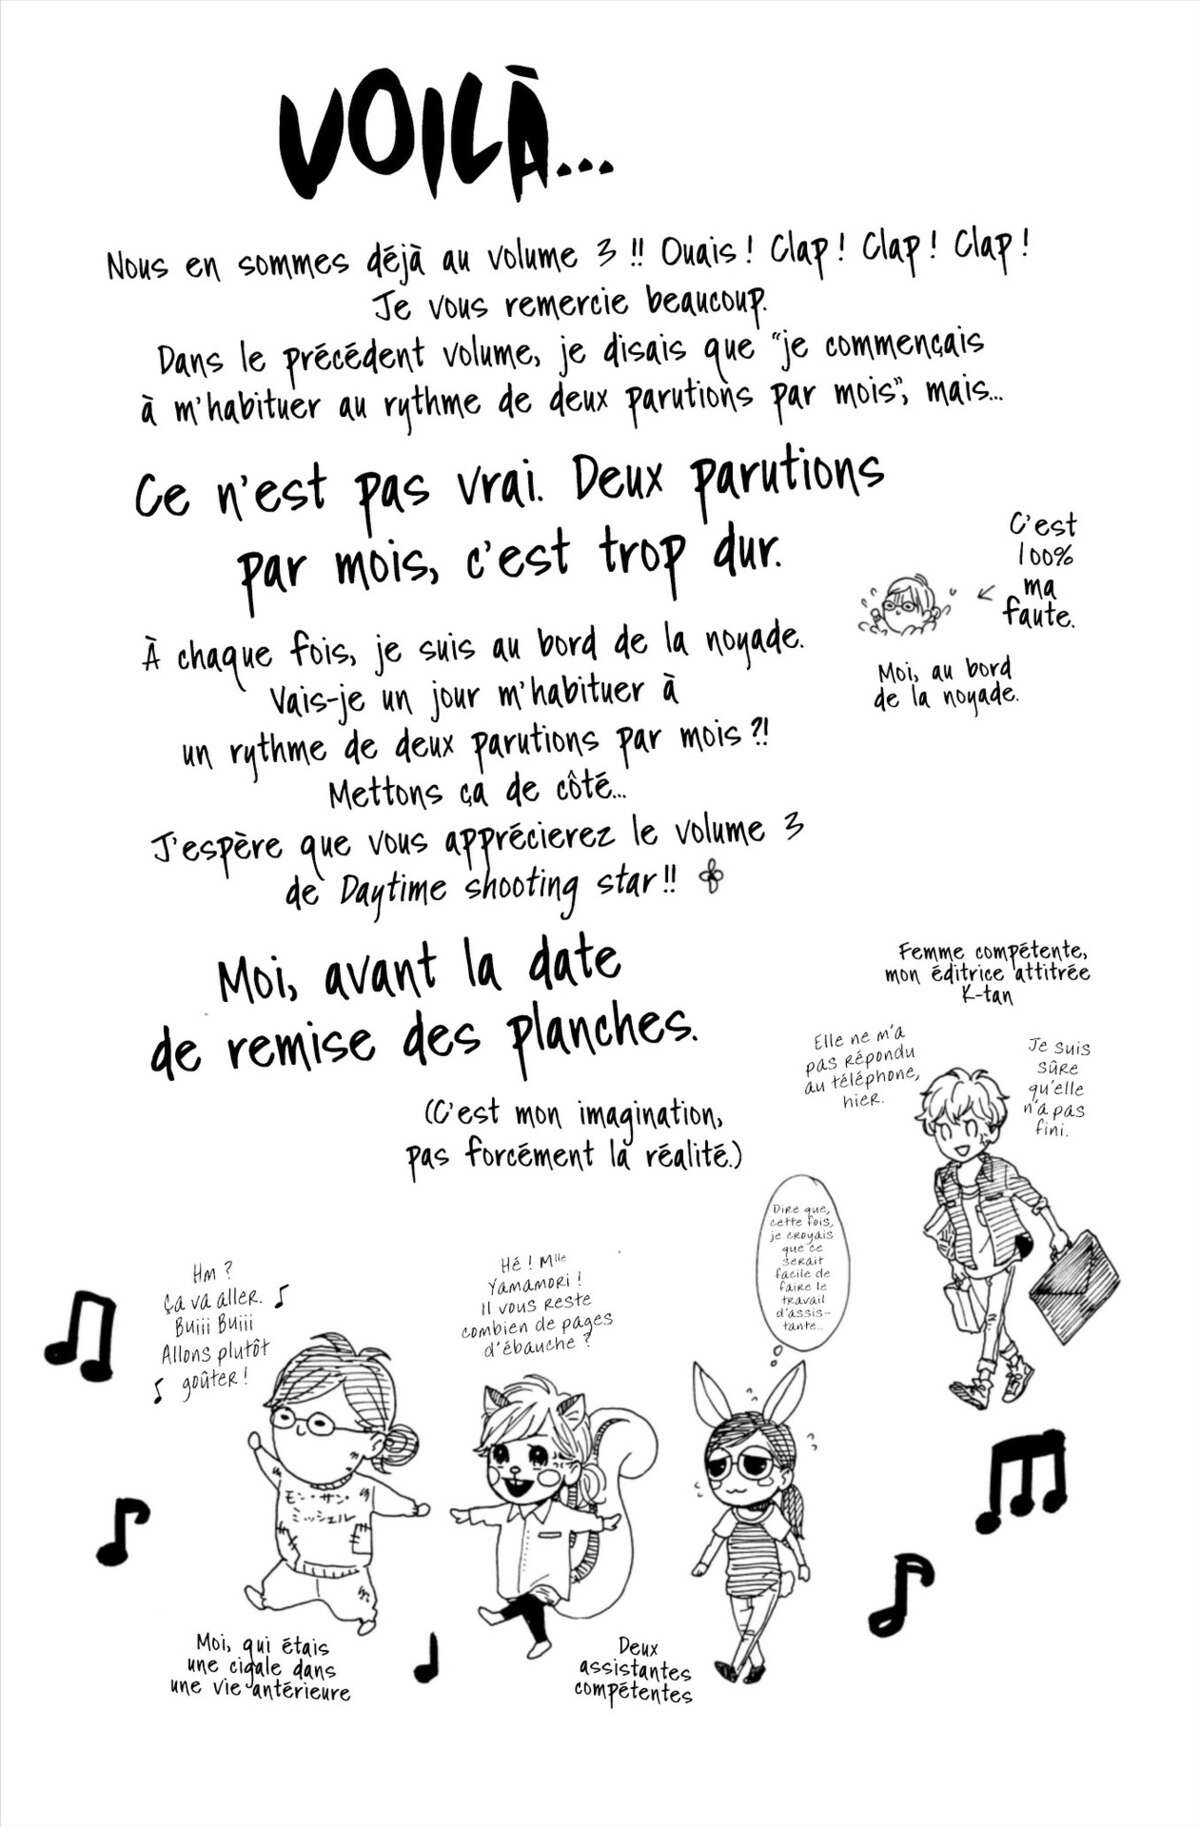 VOILÀ...
Nous en sommes déjà au volume 3 !! Ouais ! Clap ! Clap ! Clap !
Je vous remercie beaucoup.
Dans le précédent volume, je disais que "je commençais
à m'habituer au rythme de deux parutions par mois", mais...
Ce n'est pas vrai. Deux parutions
par mois, c'est trop dur.
C'est
100%
ma
faute.
Moi, au bord
de la noyade.
À chaque fois, je suis au bord de la noyade.
Vais-je un jour m'habituer à
un rythme de deux parutions par mois ?!
Mettons ça de côté...
J'espère que vous apprécierez le volume 3
de Daytime shooting star !!
Moi, avant la date
de remise des planches.
(C'est mon imagination,
pas forcément la réalité.)
Femme compétente,
mon éditrice attitrée
K-tan
Elle ne m'a
pas répondu
au téléphone,
hier.
Je suis
sûre
qu'elle
n'a pas
fini.
Dire que,
cette fois,
je croyais
que ce
serait
facile de
faire le
travail
d'assis-
tante...
Hé ! Mlle
Yamamori !
Il vous reste
combien de pages
d'ébauche ?
Hm ?
Ça va aller. ♪
Buiii Buiii
Allons plutôt
♪ goûter !
モン・サン・
ミッシェル
Moi, qui étais
une cigale dans
une vie antérieure
Deux
assistantes
compétentes